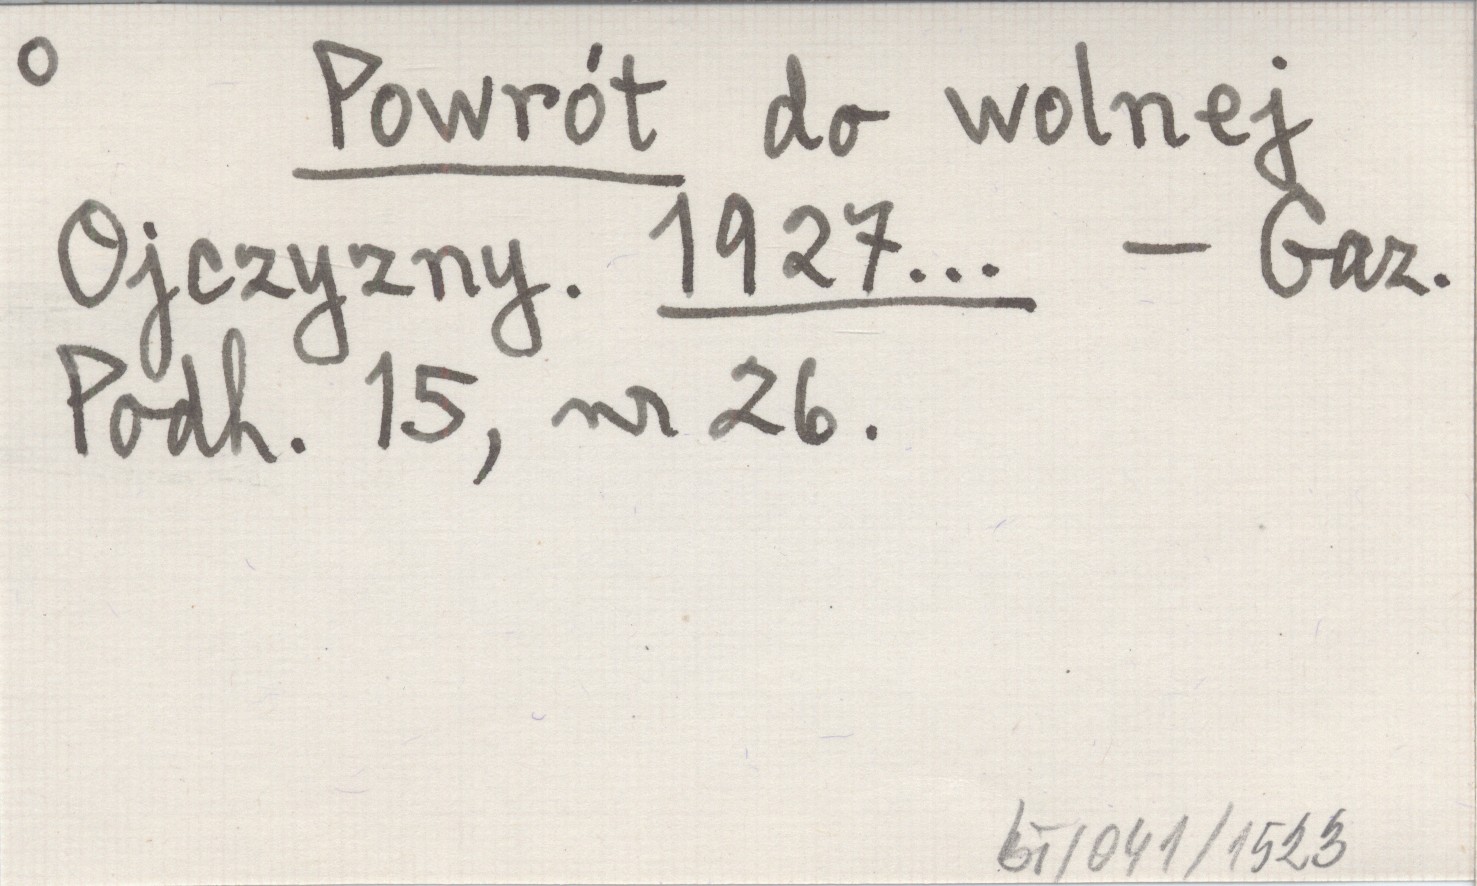 o Powrót do wolnej
Ojczyzny. 1927... – Gaz.
Podh. 15, nr 26.
bī/041/1523